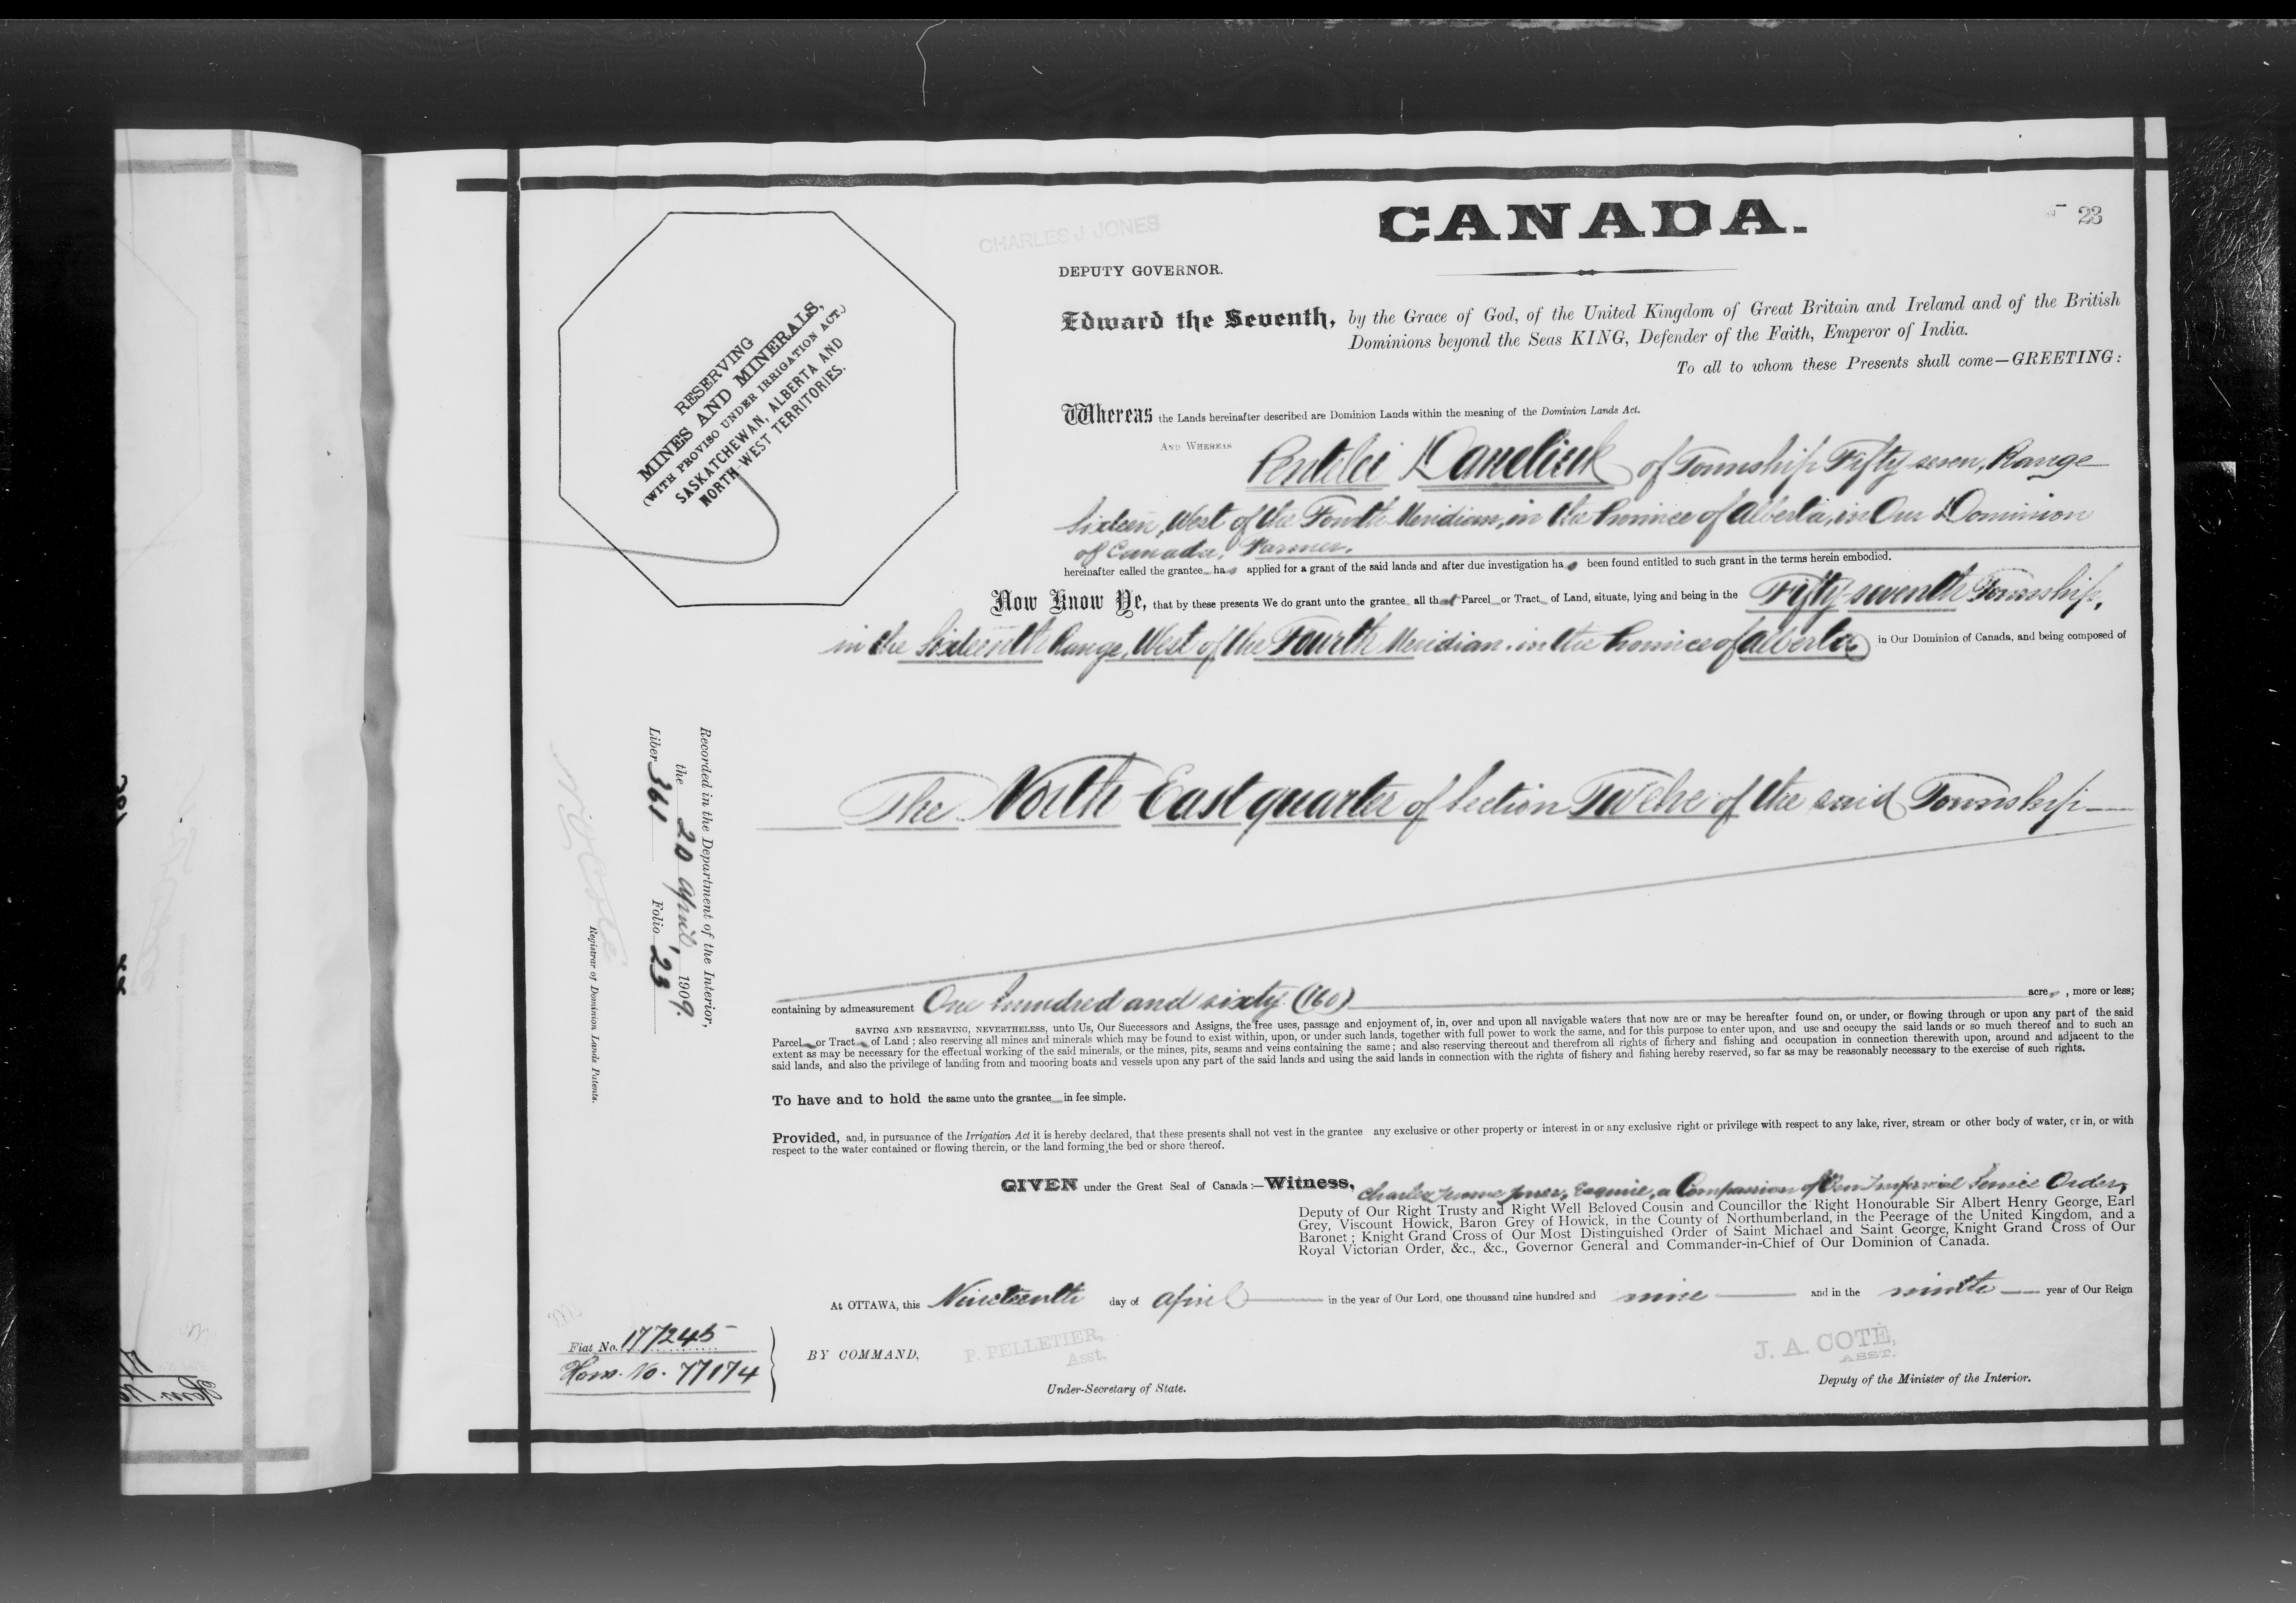 CANADA.
23
CHARLES J. JONES
DEPUTY GOVERNOR.
RESERVING
MINES AND MINERALS,
(WITH PROVISO UNDER IRRIGATION ACT.)
SASKATCHEWAN, ALBERTA AND
NORTH WEST TERRITORIES.
Edward the Seventh, by the Grace of God, of the United Kingdom of Great Britain and Ireland and of the British
Dominions beyond the Seas KING, Defender of the Faith, Emperor of India.
To all to whom these Presents shall come—GREETING:
Whereas the Lands hereinafter described are Dominion Lands within the meaning of the Dominion Lands Act.
AND WHEREAS Pentelei Daneliuk of Township Fifty seven, Range
Sixteen, West of the Fourth Meridian, in the Province of Alberta, in Our Dominion
of Canada, Farmer,
hereinafter called the grantee has applied for a grant of the said lands and after due investigation has been found entitled to such grant in the terms herein embodied.
Now Know Ye, that by these presents We do grant unto the grantee all that Parcel or Tract of Land, situate, lying and being in the Fifty-seventh Township,
in the Sixteenth Range, West of the Fourth Meridian, in the Province of Alberta in Our Dominion of Canada, and being composed of
The North East quarter of Section Twelve of the said Township
Recorded in the Department of the Interior,
the 20 April, 1909.
Liber 361 Folio 23
Registrar of Dominion Lands Patents.
containing by admeasurement One hundred and sixty (160) acres, more or less;
SAVING AND RESERVING, NEVERTHELESS, unto Us, Our Successors and Assigns, the free uses, passage and enjoyment of, in, over and upon all navigable waters that now are or may be hereafter found on, or under, or flowing through or upon any part of the said
Parcel or Tract of Land; also reserving all mines and minerals which may be found to exist within, upon, or under such lands, together with full power to work the same, and for this purpose to enter upon, and use and occupy the said lands or so much thereof and to such an
extent as may be necessary for the effectual working of the said minerals, or the mines, pits, seams and veins containing the same; and also reserving thereout and therefrom all rights of fichery and fishing and occupation in connection therewith upon, around and adjacent to the
said lands, and also the privilege of landing from and mooring boats and vessels upon any part of the said lands and using the said lands in connection with the rights of fishery and fishing hereby reserved, so far as may be reasonably necessary to the exercise of such rights.
To have and to hold the same unto the grantee in fee simple.
Provided, and, in pursuance of the Irrigation Act it is hereby declared, that these presents shall not vest in the grantee any exclusive or other property or interest in or any exclusive right or privilege with respect to any lake, river, stream or other body of water, or in, or with
respect to the water contained or flowing therein, or the land forming the bed or shore thereof.
GIVEN under the Great Seal of Canada:—Witness, Charles Jones, Esquire, a Companion of Our Imperial Service Order,
Deputy of Our Right Trusty and Right Well Beloved Cousin and Councillor the Right Honourable Sir Albert Henry George, Earl
Grey, Viscount Howick, Baron Grey of Howick, in the County of Northumberland, in the Peerage of the United Kingdom, and a
Baronet; Knight Grand Cross of Our Most Distinguished Order of Saint Michael and Saint George, Knight Grand Cross of Our
Royal Victorian Order, &c., &c., Governor General and Commander-in-Chief of Our Dominion of Canada.
At OTTAWA, this Nineteenth day of April in the year of Our Lord, one thousand nine hundred and nine and in the ninth year of Our Reign
Fiat No. 177245
Hom. No. 77174
BY COMMAND,
P. PELLETIER,
Asst.
Under-Secretary of State.
J. A. COTÉ,
ASST.
Deputy of the Minister of the Interior.